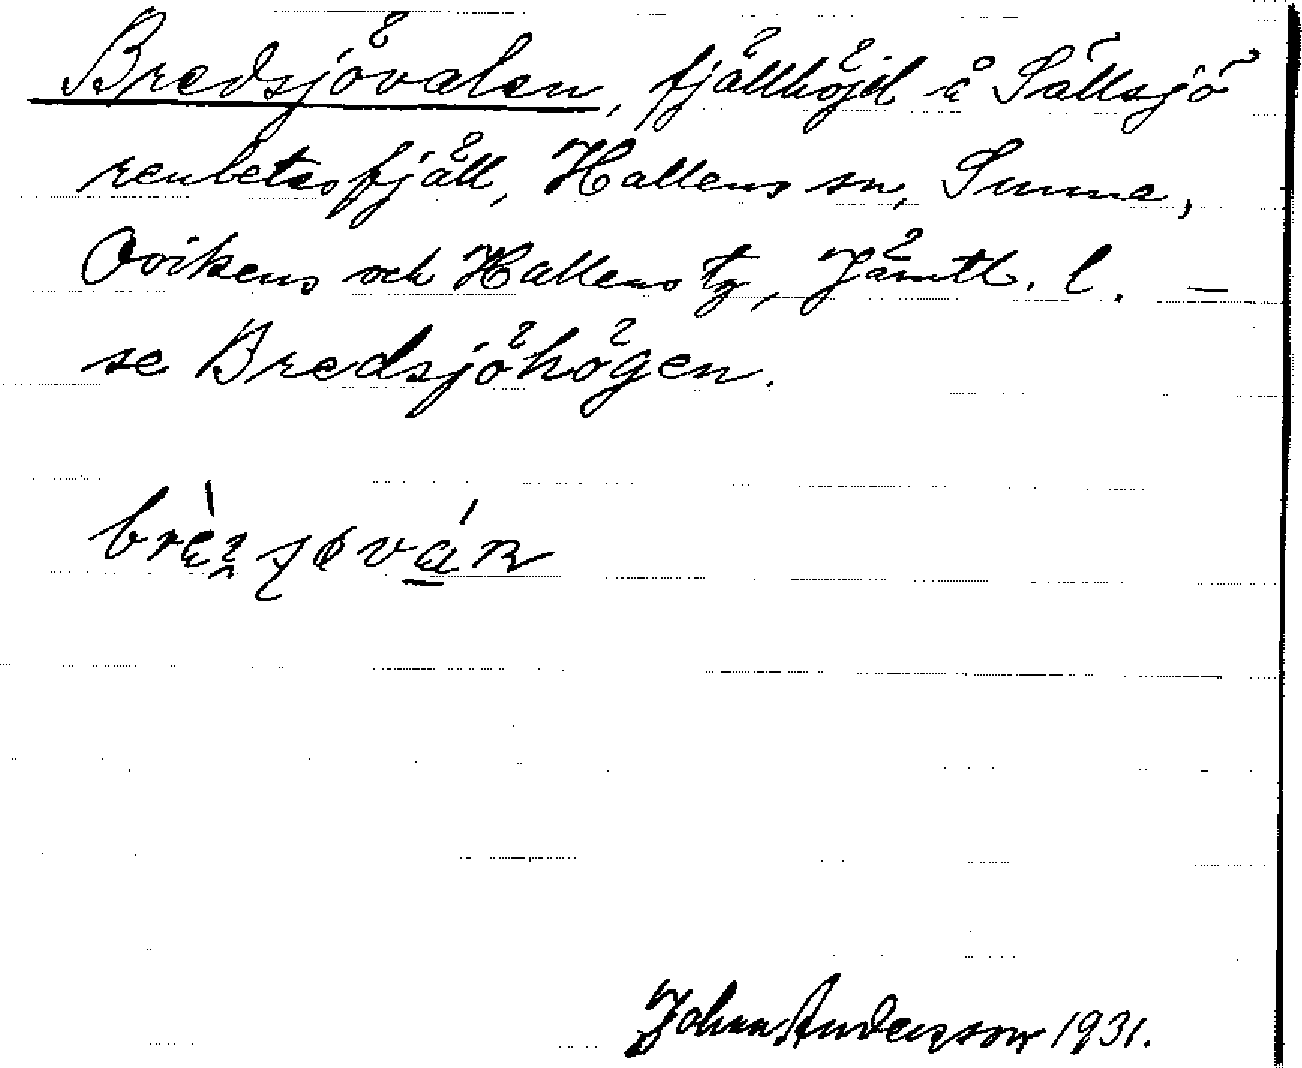 Bredsjövalen, fjällhöjd å Sällsjö
renbetesfjäll, Hallens sn, Sunne,
Ovikens och Hallens tg, Jämtl. l. —
se Bredsjöhögen.
Johan Anderson 1931.